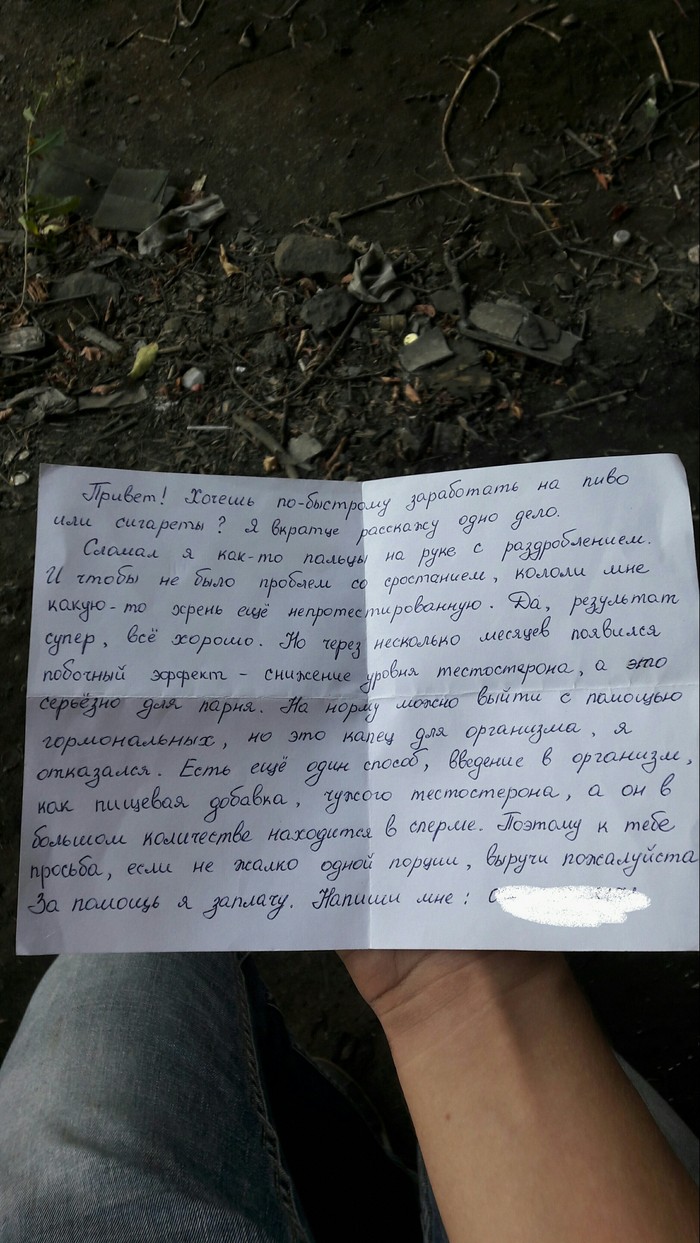 Привет! Хочешь по-быстрому заработать на пиво
или сигареты? Я вкратце расскажу одно дело.
Сломал я как-то пальцы на руке с раздроблением.
И чтобы не было проблем со сростанием, кололи мне
какую-то хрень ещё непротестированную. Да, результат
супер, всё хорошо. Но через несколько месяцев появился
побочный эффект - снижение уровня тестостерона, а это
серьёзно для парня. На норму можно выйти с помощью
гормональных, но это капец для организма, я
отказался. Есть ещё один способ, введение в организм,
как пищевая добавка, чужого тестостерона, а он в
большом количестве находится в сперме. Поэтому к тебе
просьба, если не жалко одной порции, выручи пожалуйста
За помощь я заплачу. Напиши мне: